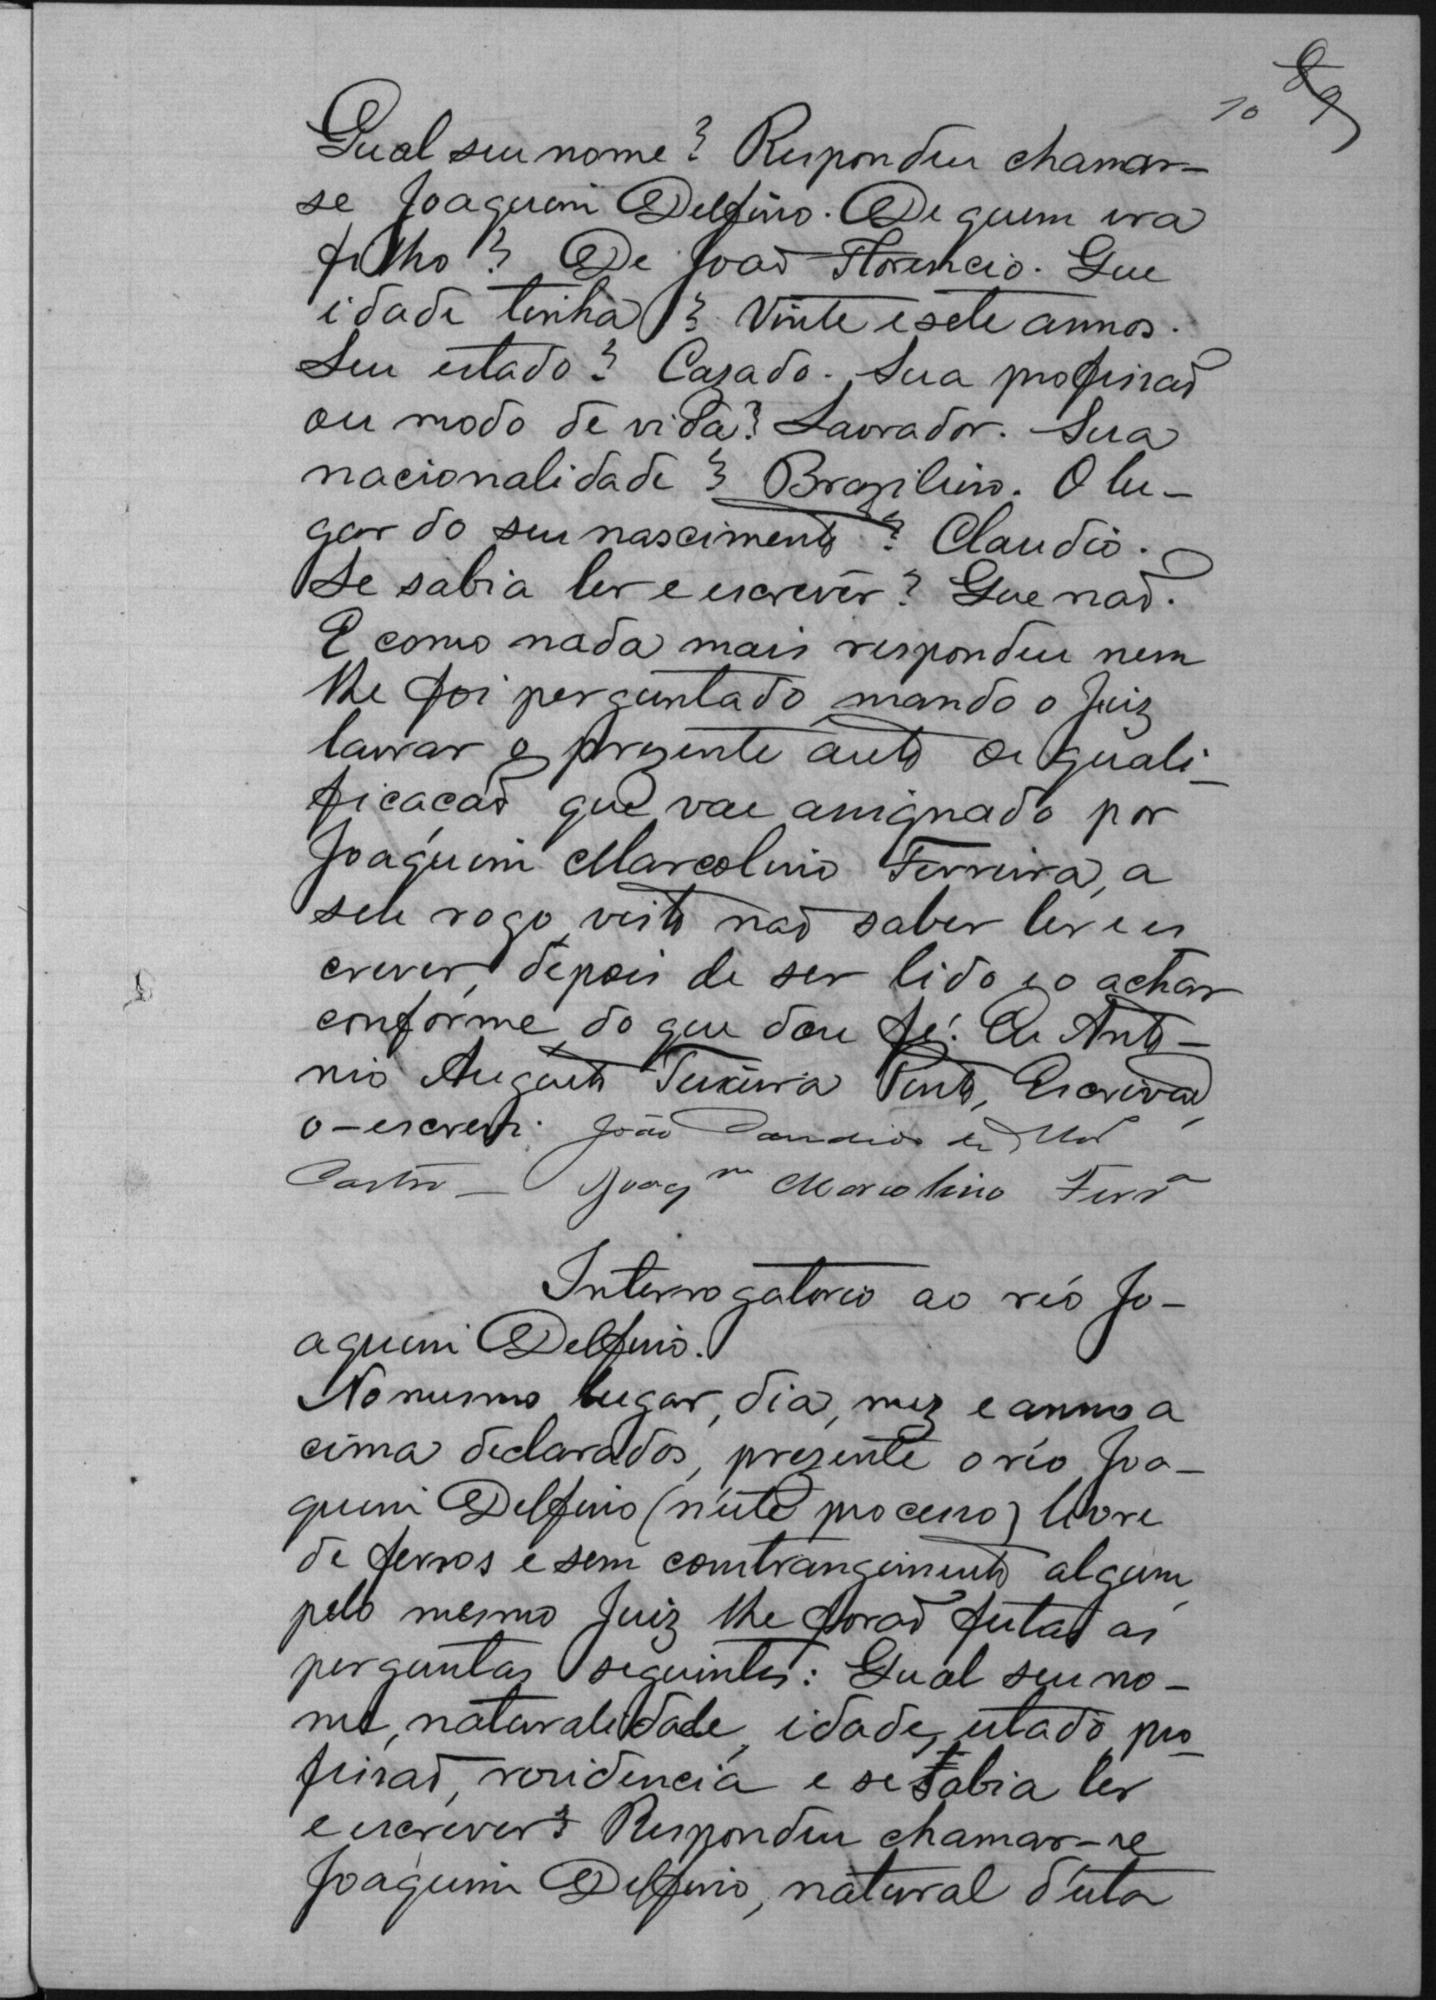 10 8 9
Qual seu nome? Respondeu chamar-
se Joaquim Delfino. De quem era
filho? De João Florencio. Que
idade tinha? Vinte e sete annos.
Seu estado? Cazado. Sua profissaõ
ou modo de vida? Lavrador. Sua
nacionalidade? Brazileiro. O lu-
gar do seu nascimento? Claudio.
Se sabia ler e escrever? Que naõ.
E como nada mais respondeu nem
lhe foi perguntado, mando o Juiz
lavrar o prezente auto de quali-
ficacaõ que vae assignado por
Joaquim Marcolino Ferreira, a
seu rogo visto naõ saber ler e es
crever, depois de ser lido e o achar
conforme do que dou fé. Eu Anto-
nio Augusto Teixeira Pinto, Escrivaõ,
o-escrevi. João Candido de
Castro - Joaqm Marcolino Ferrª
Interrogatorio ao réo Jo-
aquim Delfino.
No mesmo lugar, dia, mez e anno a
cima declarados, prezente o réo Joa-
quim Delfino (n'este processo) livre
de ferros e sem constrangimento algum,
pelo mesmo Juiz lhe foraõ feitas as
perguntas seguintes: Qual seu no-
me, naturalidade, idade, estado, pro-
fissaõ, rezidencia e se sabia ler
e escrever? Respondeu chamar-se
Joaquim Delfino, natural d'esta